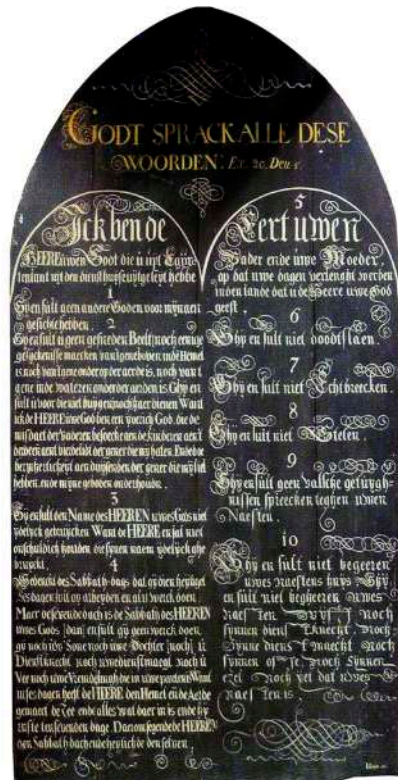 GODT SPRACK ALLE DESE
WOORDEN. Ex. 20. Deu. 5.
Ick ben de
HEERE uwen Godt die u uyt Egipten
lant uyt den diensthuyse uytgeleyt hebbe
1
Ghy en sult geen andere Goden voor mijn aen
gesichte hebben.
2
Ghy en sult u geen gesneden Beelt noch eenige
gelyckenisse maecken van 'tgene boven in de Hemel
is noch van tgene onder op der aerde is, noch van t
gene in de wateren onder der aerden is Ghy en
sult u voor die niet buygen noch haer dienen Want
ick de HEERE uwe God ben een God, die de
misdaet der vaderen besoecke aen de kinderen aen't
derde en aent vierde lidt der gener die my haten. Ende doe
bermherticheyt aen duysenden der gener die my lief
hebben, ende myne geboden onderhouden.
3
Ghy en sult den Name des HEEREN uwes Gods niet
ydelyck gebruycken Want de HEERE en sal niet
onschuldich houden die synen naem ydelyck
4
Gedenckt des Sabbath dags dat gy dien heyliget
Ses dagen sult gy arbeyden en al u werck doen
Maer de sevende dach is de Sabbath des HEEREN
uwes Gods dan en sult gy geen werck doen
gy noch uw Sone noch uwe Dochter noch u
Dienstknecht noch uwe dienstmaegt noch u
Vee noch uwe Vremdeling die in uwe poorten is Want
in ses dagen heeft de HEERE den Hemel en de Aerde
gemaect de Zee ende alles wat daer in is ende hy
ruste ten sevenden dage Daerom segende de HEERE
den Sabbath dach ende heylichde den selven
5
Eert uwen
Vader ende uwe Moeder,
op dat uwe dagen verlenght werden
in den lande dat u de Heere uwe God
geeft.
6
Ghy en sult niet doodtslaen.
7
Ghy en sult niet Echtbreecken.
8
Ghy en sult niet Stelen.
9
Ghy en sult geen valsche getuygh-
nissen spreecken teghen uwen
Naesten.
10
Ghy en sult niet begeeren
uwes naestens huys Ghy
en sult niet begheeren uwes
naesten Wyf noch
synnen dienst knecht, noch
synne dienst maecht noch
synnen osse, noch synnen
ezel noch yet dat uwes
naesten is.